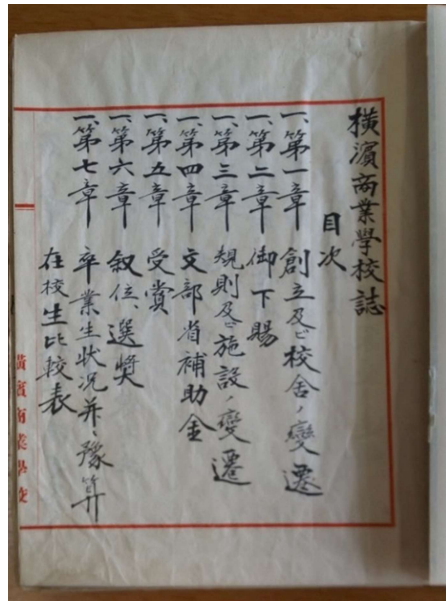 横濱商業學校誌
目次
一、第一章 創立及ビ校舎ノ變遷
一、第二章 御下賜
一、第三章 規則及ビ施設ノ變遷
一、第四章 文部省補助金
一、第五章 受賞
一、第六章 叙位、選奬
一、第七章 卒業生状况并、豫算
在校生比較表
横濱商業學校